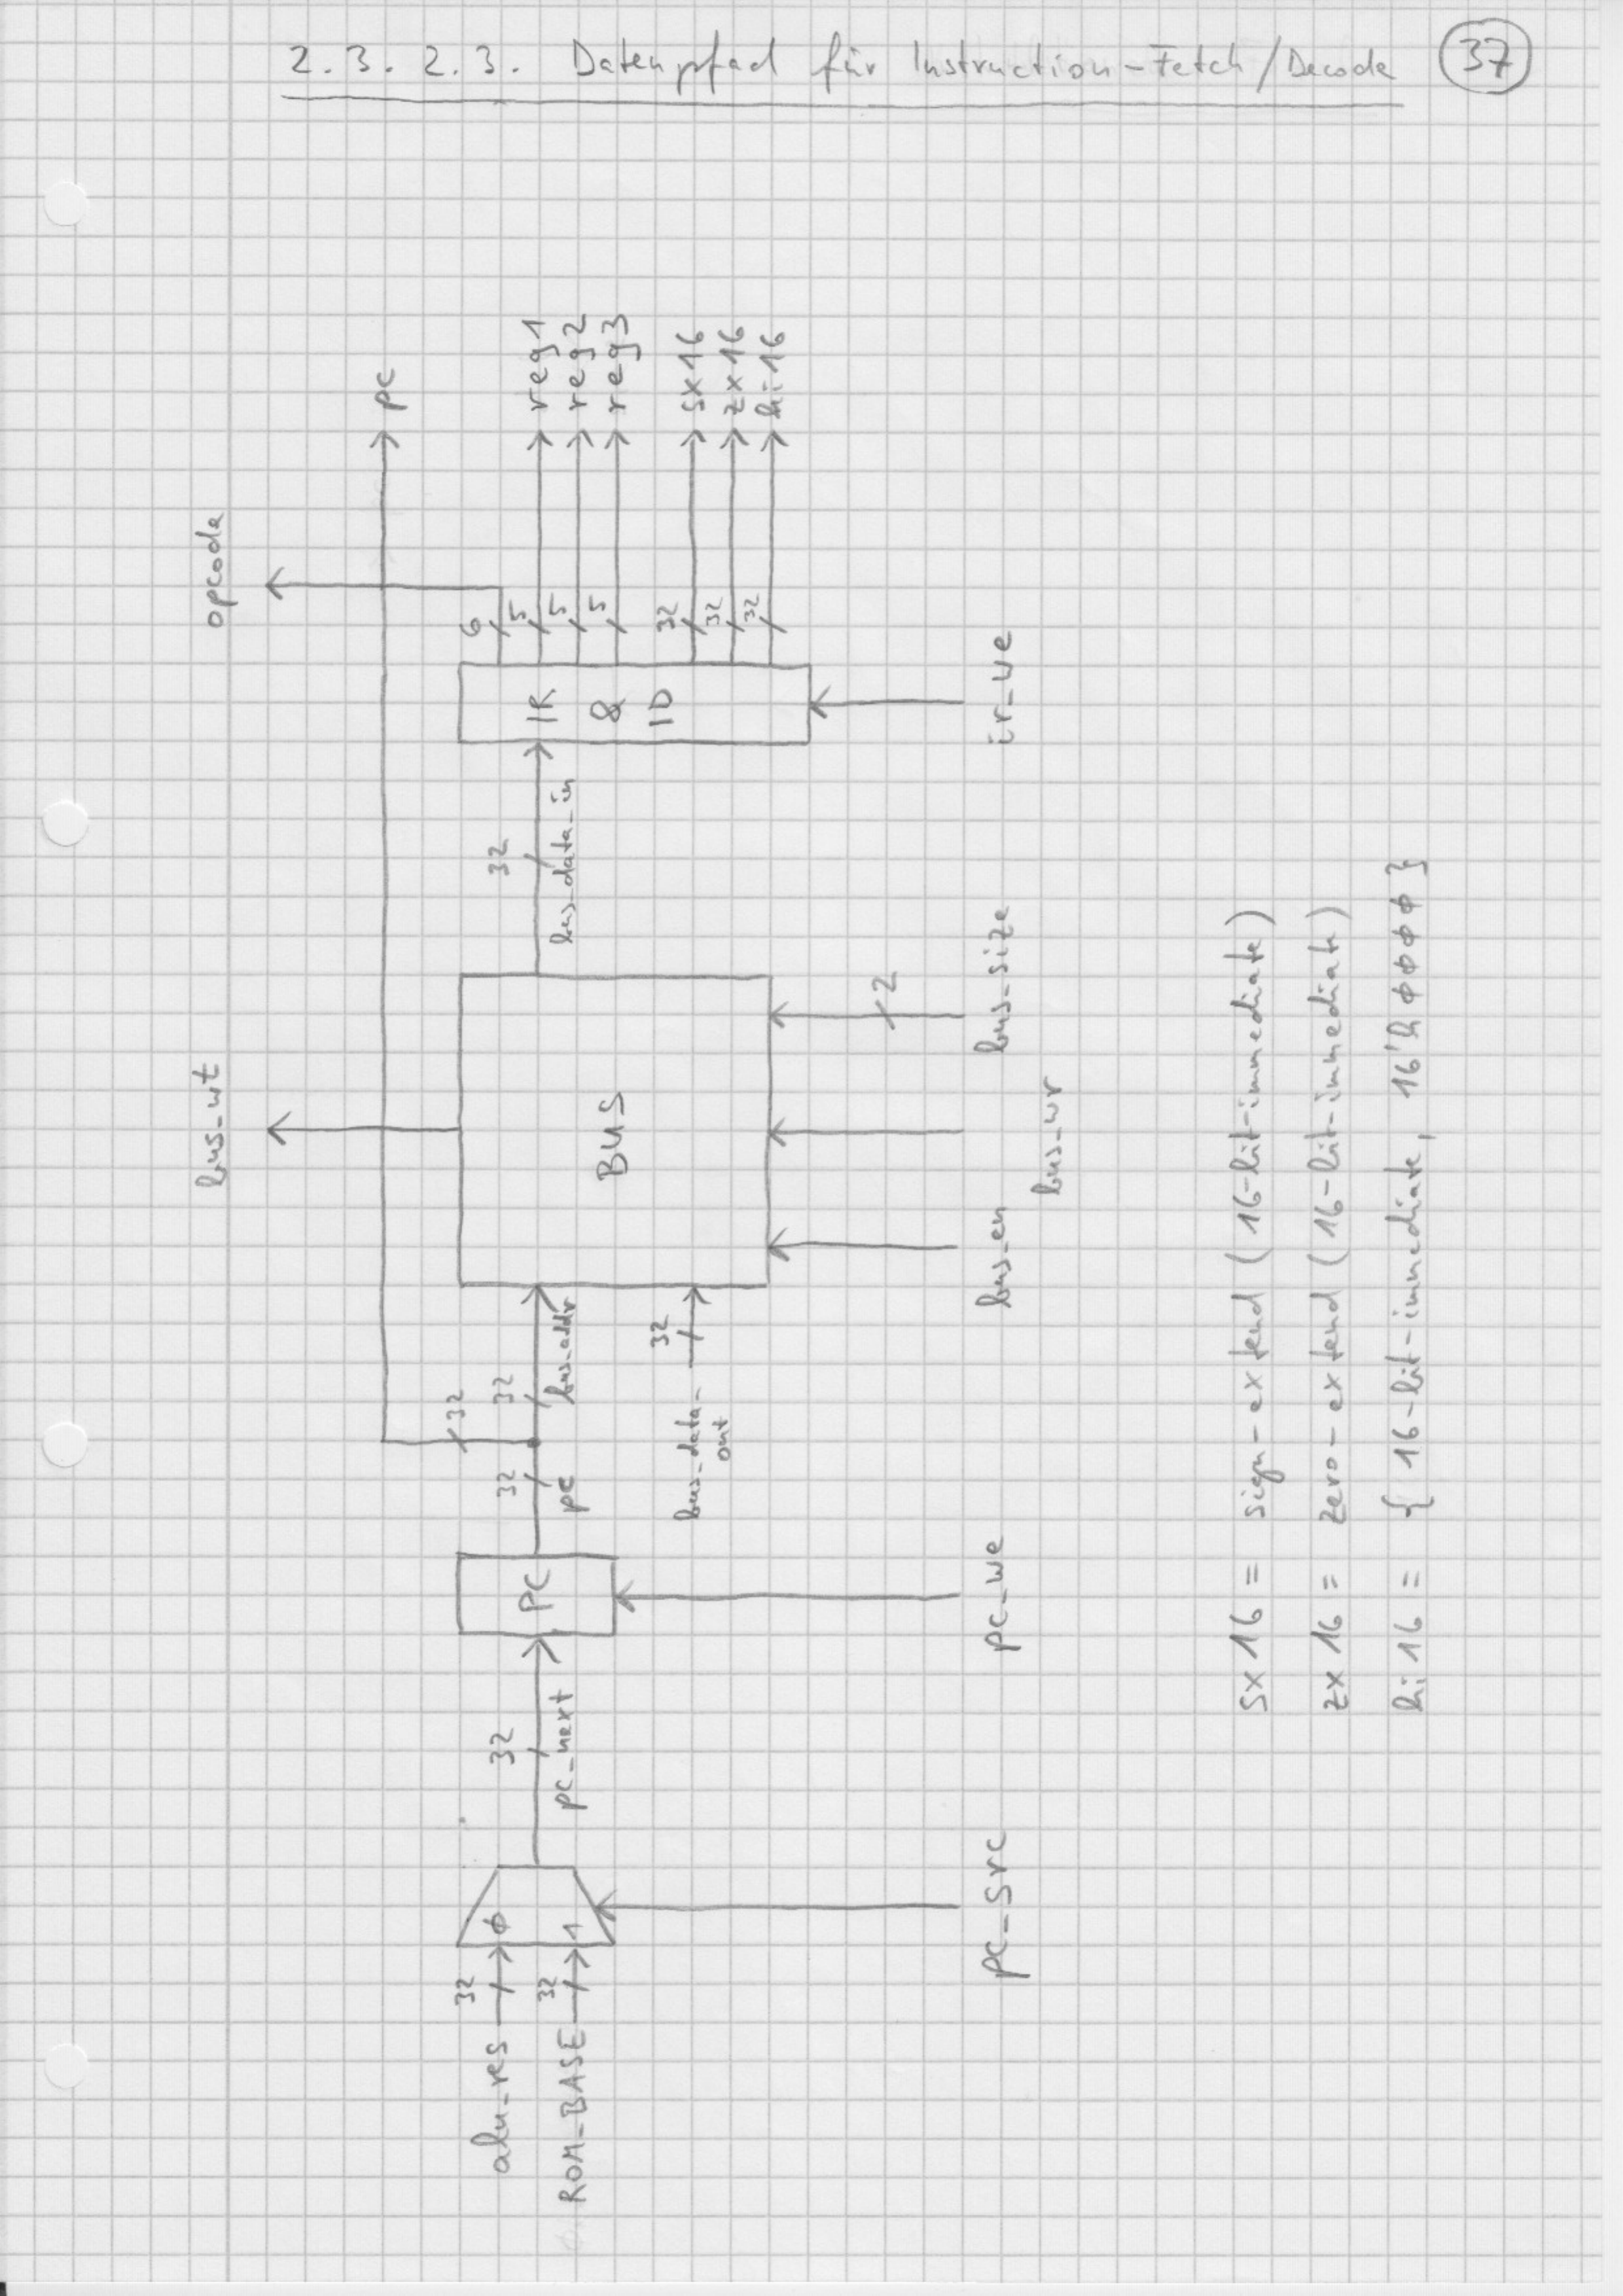 2.3.2.3. Datenpfad für Instruction-Fetch/Decode
37
bus_wt
opcode
pc
alu_res
32
ROM_BASE
32
φ
1
32
pc_next
PC
32
pc
32
32
bus_addr
bus_data_
out
32
BUS
32
bus_data_in
IR
&
ID
6
5
5
5
32
32
32
reg1
reg2
reg3
sx16
zx16
hi16
2
pc_src
pc_we
bus_en
bus_wr
bus_size
ir_we
sx16 = sign-extend (16-bit-immediate)
zx16 = zero-extend (16-bit-immediate)
hi16 = { 16-bit-immediate, 16'hφφφφ }